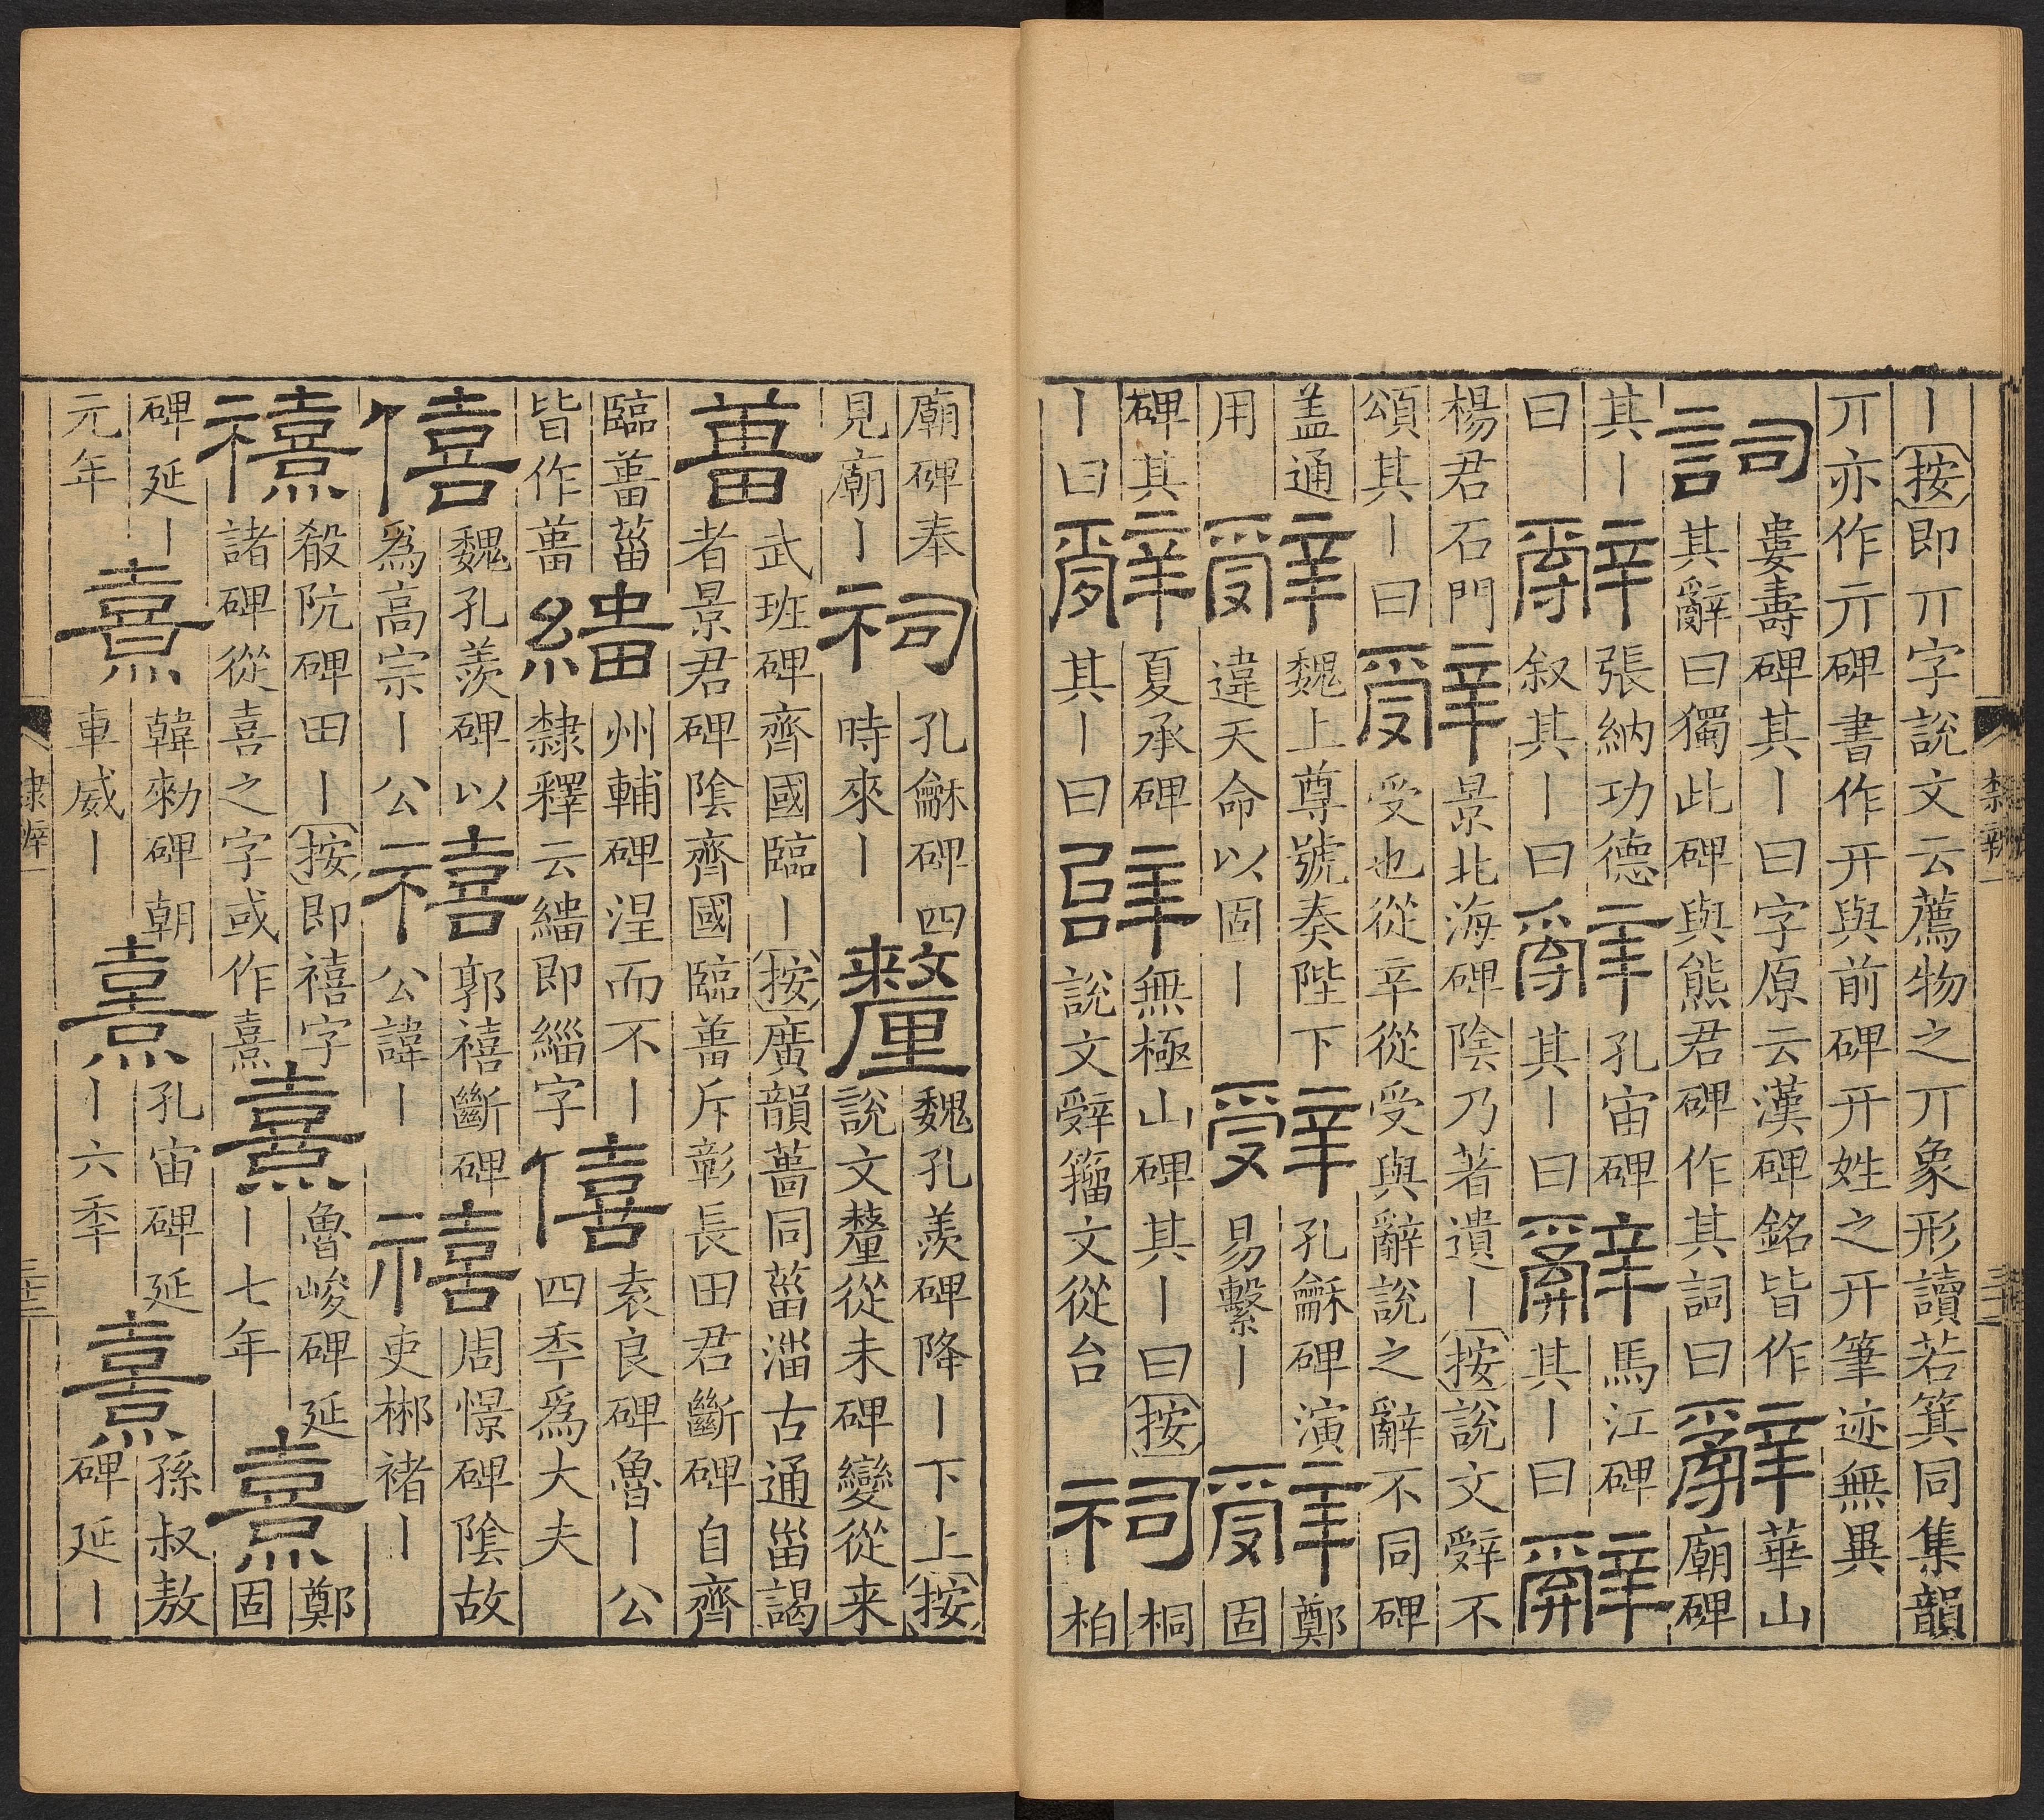 丨按即丌字說文云薦物之丌象形讀若箕同集韻
丌亦作亓碑書作开與前碑开姓之开筆迹無異
詞
婁壽碑其丨曰字原云漢碑銘皆作
其辭曰獨此碑與熊君碑作其詞曰
辭
華山
廟碑
其丨
曰
辭
張納功德
叙其丨曰
辭
孔宙碑
其丨曰
辭
馬江碑
其丨曰
辭
楊君石門
頌其丨曰
辤
景北海碑陰乃著遺丨按說文辤不
受也從辛從受與辭說之辭不同碑
盖通
用
辤
魏上尊號奏陛下
違天命以固丨
辤
孔龢碑演
易繫丨
辤
鄭
固
碑其
丨曰
辭
夏承碑
其丨曰
辝
無極山碑其丨曰按
說文辤籀文從台
祠
桐
柏
廟碑奉
見廟丨
祠
孔龢碑四
時來丨
釐
魏孔羨碑降丨下上按
說文釐從未碑變從来
葘
武班碑齊國臨丨按廣韻葘同菑淄古通甾謁
者景君碑陰齊國臨葘斥彰長田君斷碑自齊
臨葘菑
皆作葘
繬
州輔碑涅而不丨
隸釋云繬即緇字
僖
袁良碑魯丨公
四秊爲大夫
僖
魏孔羨碑以
爲高宗丨公
禧
郭禧斷碑
公諱丨
禧
周憬碑陰故
吏郴褚丨
禧
殽阬碑田丨按即禧字
諸碑從喜之字或作熹
熹
魯峻碑延
丨七年
熹
鄭
固
碑延丨
元年
熹
韓勑碑朝
車威丨
熹
孔宙碑延
丨六秊
熹
孫叔敖
碑延丨